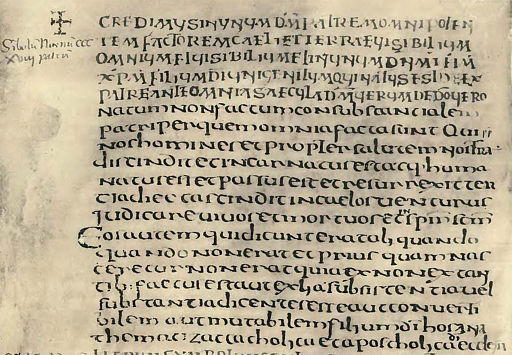 CREDIMUS IN UNUM DM PATREM OMNIPOTEN
TEM FACTOREM CAELI ET TERRAE VISIBILIUM
OMNIUM ET INVISIBILIUM ET IN UNUM DNM IHM
XPM FILIUM DI UNIGENITUM QUI NATUS EST DE
PATRE ANTE OMNIA SAECULA DM UERUM DE DO UERO
natum non factum consubstantialem
patri per quem omnia facta sunt Qui
nos homines et propter salutem nostra
discendit et incarnatus est
natus est et passus est et resurrexit ter
tia die et ascendit in caelos uenturus
iudicare uiuos et mortuos et
Eos autem qui dicunt erat aliquando
quando non erat et prius quam nas
ceretur non erat et quia ex non extan
tib: factus est aut ex alia subsistentia uel
substantia dicentes esse aut conuerti
bilem aut mutabilem filium di hos ana
thematizat catholica et apostolica